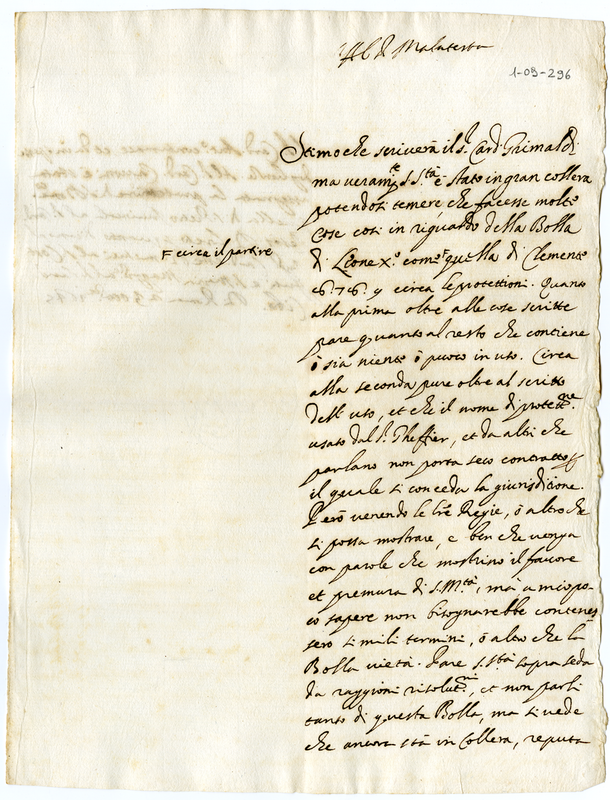 Al S.r Malatesta
1-09-296
Stimo che scriverà il S.r Card. Grimaldi
ma veram.te S. S.tà è stato in gran collera
potendosi temere che facesse molte
cose così in riguardo della Bolla
di Leone X.o come quella di Clemente
circa le protettioni. Quanto
alla prima oltre alle cose scritte
pare quanto al resto che contiene
ò sia niente ò puoco in uso. Circa
alla seconda pure oltre al scritto
dell'uso, et che il nome di protett.ne
usato dal S.r Gheffier, et da altri che
parlano non porta seco contratto
il quale si conceda la giurisdicione.
Però venendo le lre Regie, ò altro che
si possa mostrare, e ben che venga
con parole che mostrino il favore
et premura di S. M.tà, mà à mio po-
co sapere non bisognarebbe contenes
sero simili termini, ò altro che la
Bolla vieta. Pare S. S.tà sopraseda
da raggioni risolut.ni, et non parli
tanto di questa Bolla, ma si vede
che ancora stà in Collera, reputa
circa il partire